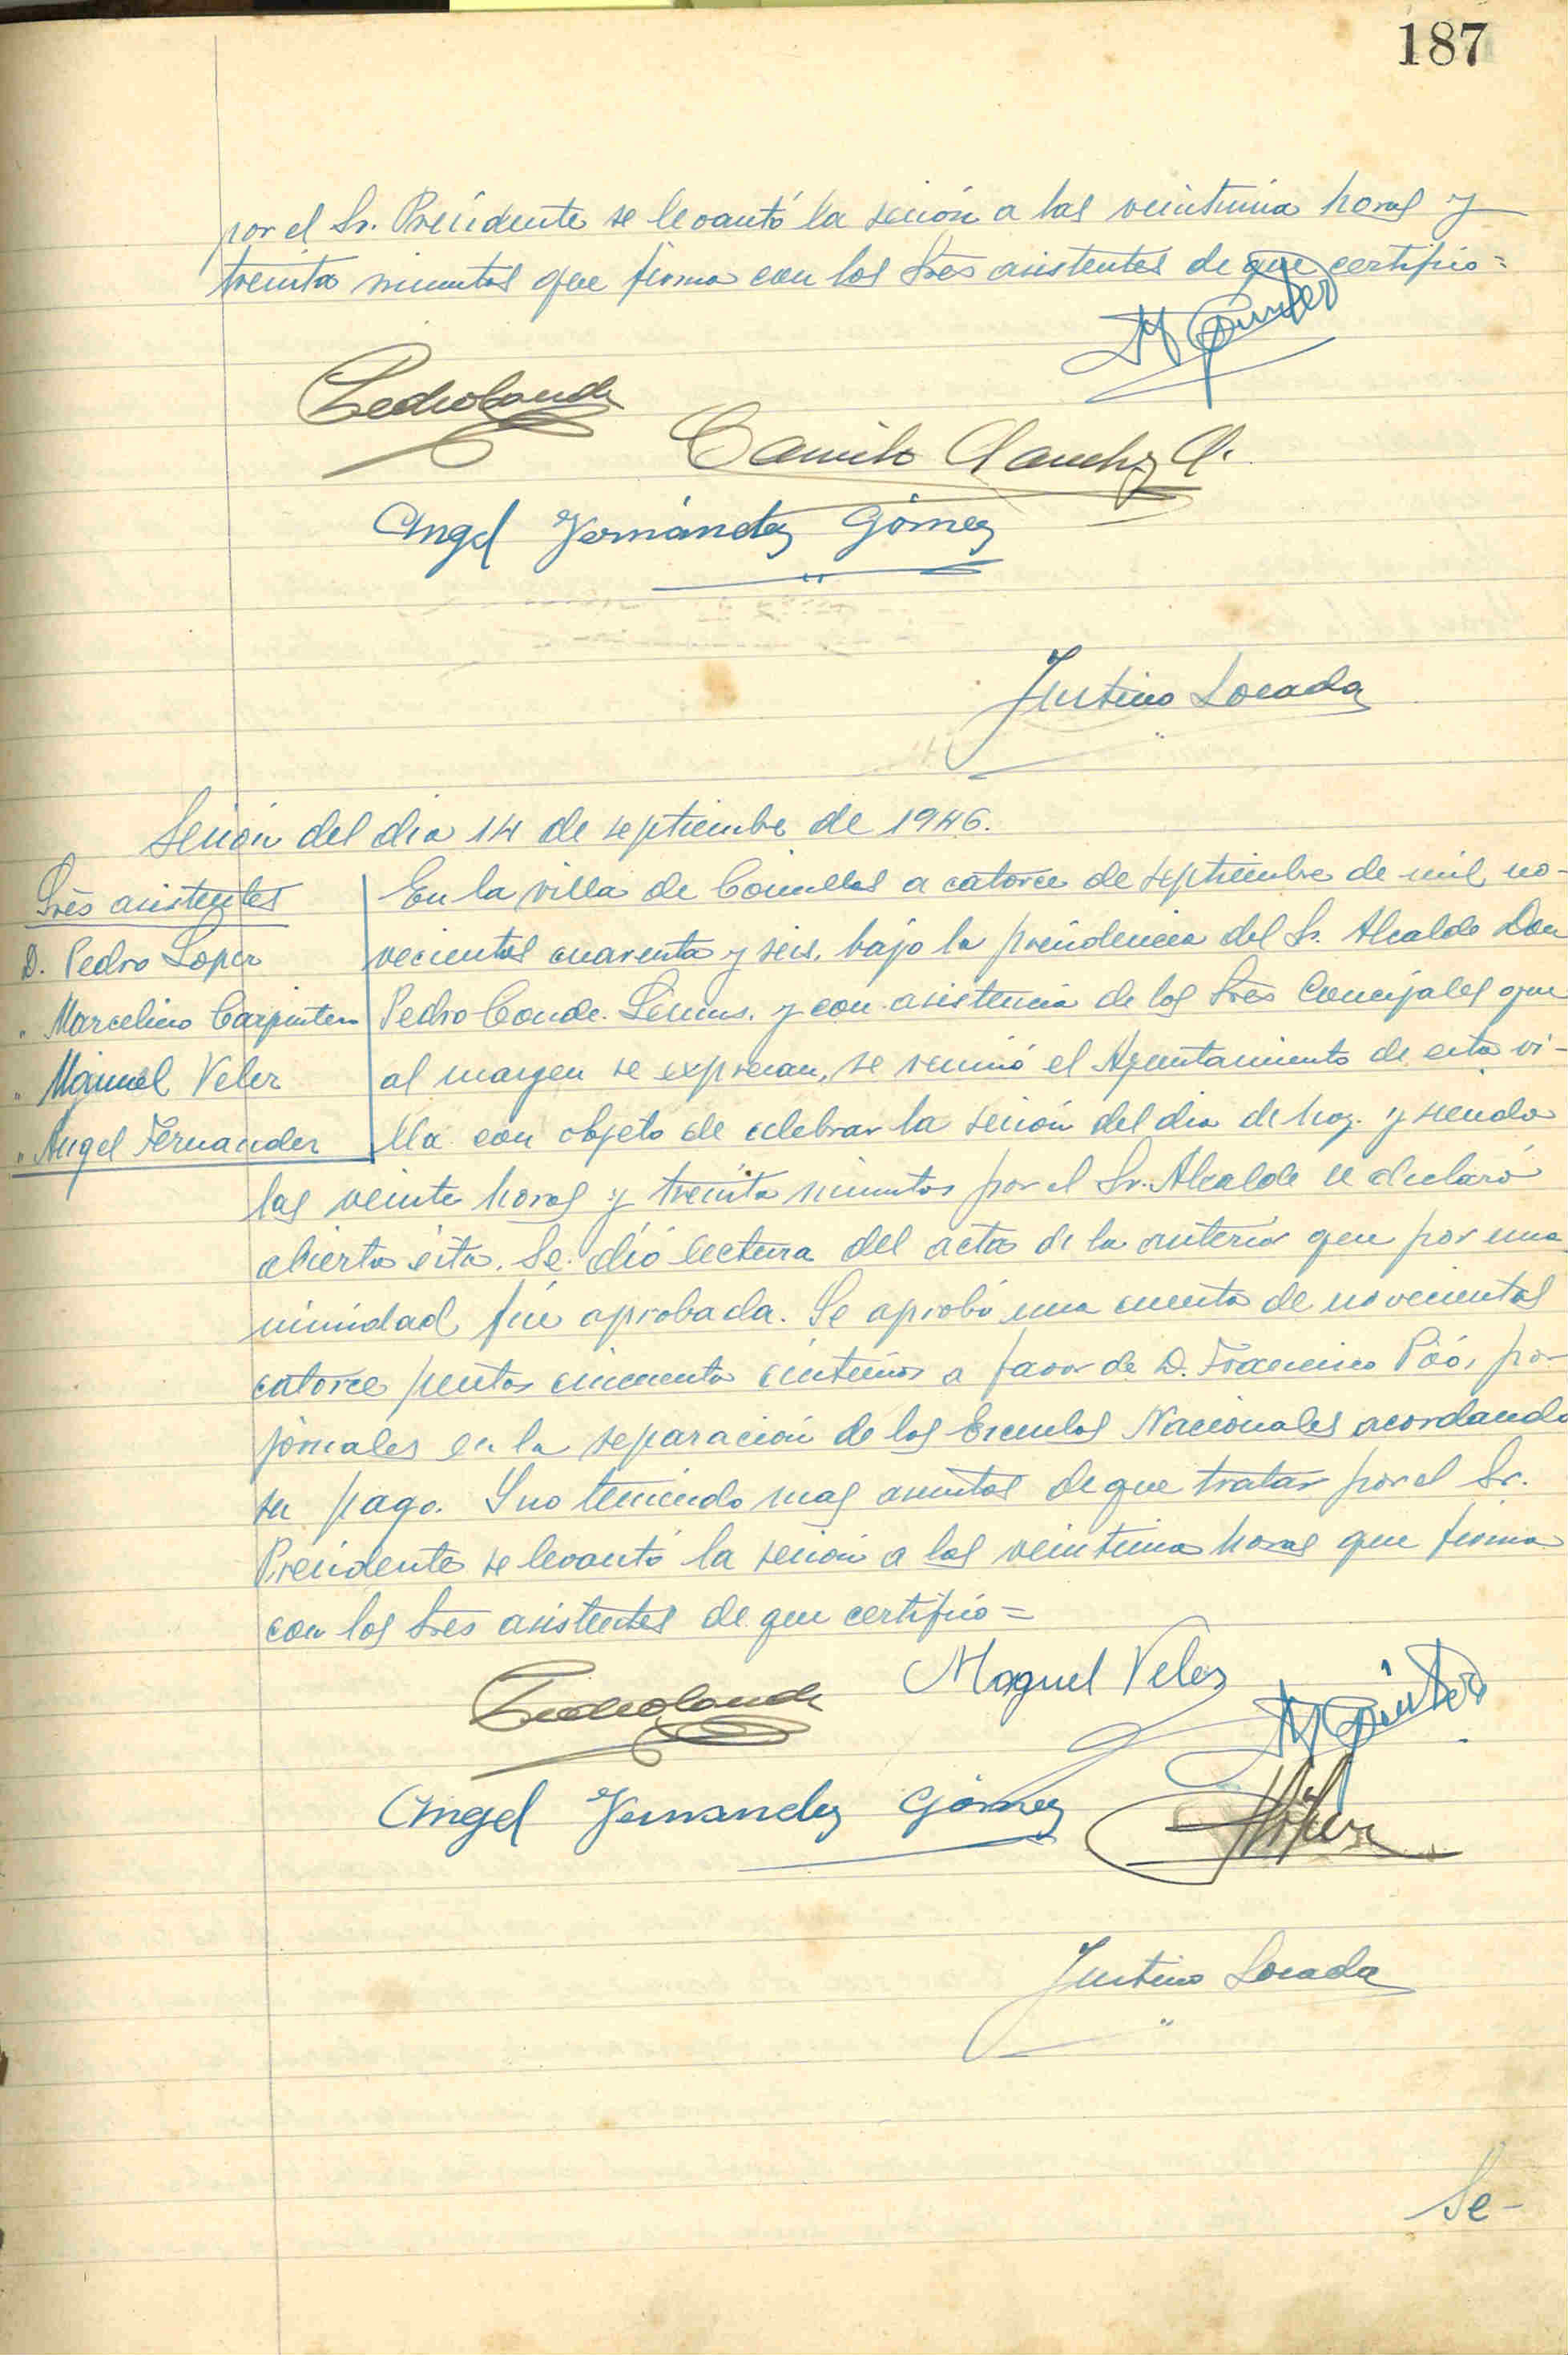 187
por el Sr. Presidente se levantó la sesión a las veintiuna horas y
treinta minutos que firma con los Sres asistentes de que certifico=
Pedro Conde
Camilo Sanchez
Angel Fernández Gómez
Justino Losada
Sesión del dia 14 de septiembre de 1946.
Sres asistentes
D. Pedro Lopez
" Marcelino Carpintero
" Manuel Velez
" Angel Fernandez
En la villa de Comillas a catorce de septiembre de mil no-
vecientos cuarenta y seis, bajo la presidencia del Sr. Alcalde Don
Pedro Conde. y con asistencia de los Sres Concejales que
al margen se expresan, se reunió el Ayuntamiento de esta vi-
lla con objeto de celebrar la sesión del dia de hoy. y siendo
las veinte horas y treinta minutos por el Sr. Alcalde se declaró
abierta ésta. Se dió lectura del acta de la anterior que por una
nimidad fué aprobada. Se aprobó una cuenta de novecientas
catorce pesetas cincuenta céntimos a favor de D. Francisco Póo, por
jornales en la reparación de las Escuelas Nacionales acordando
su pago. Y no teniendo mas asuntos de que tratar por el Sr.
Presidente se levantó la sesión a las veintiuna horas que firma
con los Sres asistentes de que certifico=
Pedro Conde
Manuel Velez
Angel Fernandez Gómez
Justino Losada
Se-